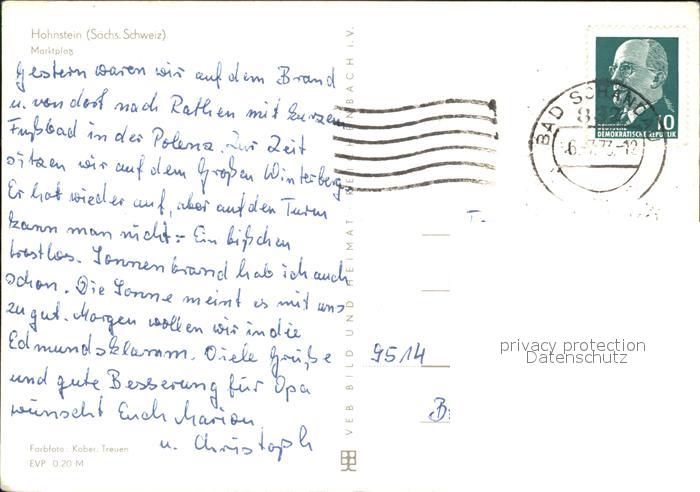 Hohnstein (Sächs. Schweiz)
Marktplatz
Gestern waren wir auf dem Brand
u. von dort nach Rathen mit kurzem
Fußbad in der Polenz. Zur Zeit
sitzen wir auf dem Großen Winterberg.
Er hat wieder auf, aber auf den Turm
kann man nicht. Ein bißchen
trostlos. Sonnenbrand hab ich auch
schon. Die Sonne meint es mit uns
zu gut. Morgen wollen wir in die
Edmundsklamm. Viele Grüße
und gute Besserung für Opa
wünscht Euch Marion
u. Christoph
Farbfoto: Kober, Treuen
EVP 0.20 M
VEB BILD UND HEIMAT REICHENBACH I.V.
BAD SCHANDAU
10
DEUTSCHE
DEMOKRATISCHE REPUBLIK
9514
B
privacy protection
Datenschutz